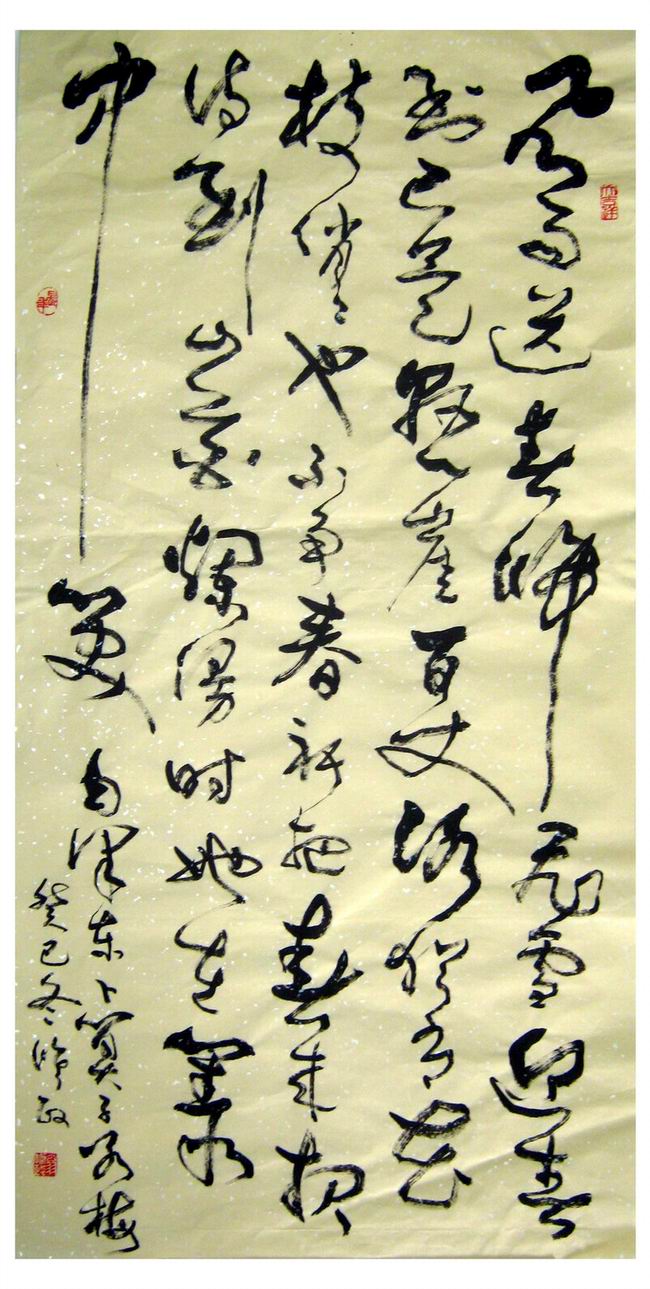 风雨送春归飞雪迎春
到已是悬崖百丈冰犹有花
枝俏也不争春祇把春来报
待到山花烂漫时她在丛
中笑 毛泽东卜算子咏梅
癸巳冬